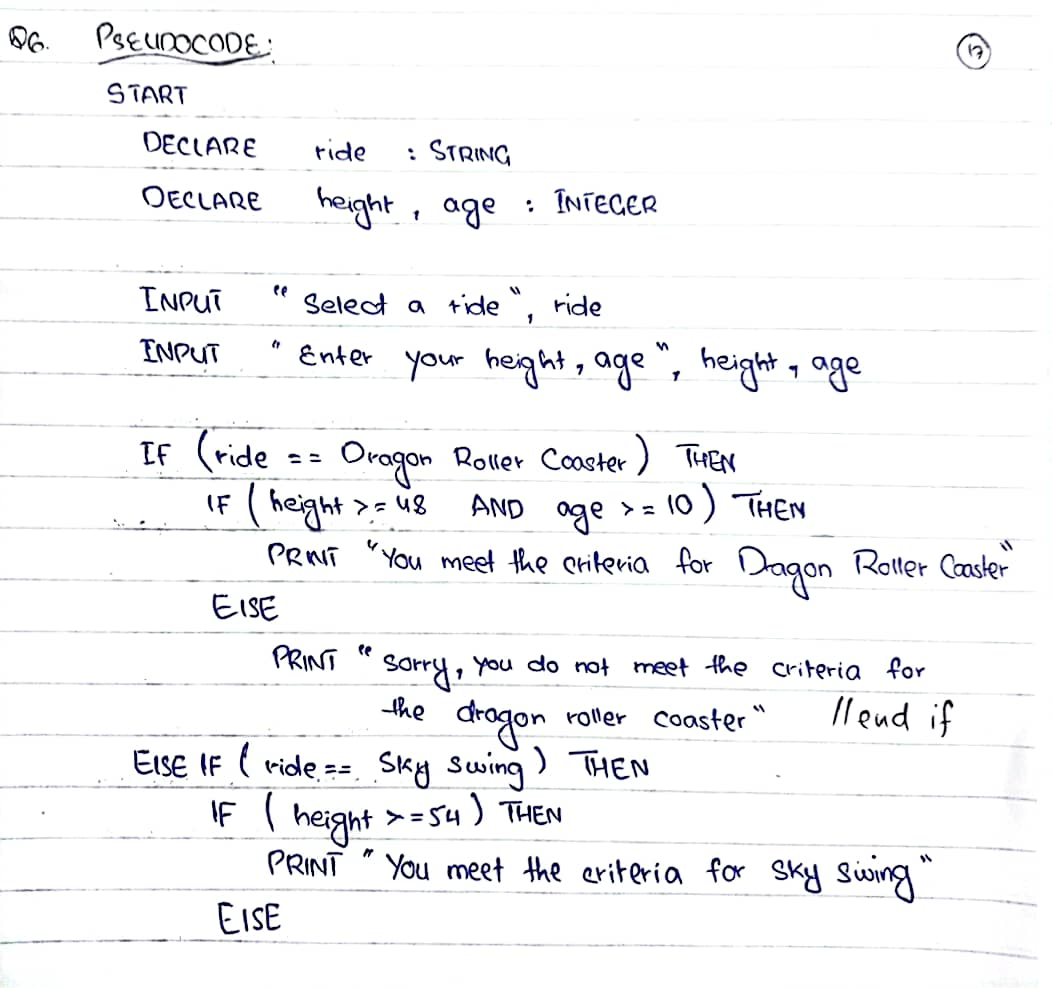 Q6. PSEUDOCODE: 17
START
DECLARE ride : STRING
DECLARE height, age : INTEGER
INPUT "Select a ride", ride
INPUT "Enter your height, age", height, age
IF (ride == Dragon Roller Coaster) THEN
IF (height >= 48 AND age >= 10) THEN
PRINT "You meet the criteria for Dragon Roller Coaster"
ELSE
PRINT "sorry, you do not meet the criteria for
the dragon roller coaster" //end if
ELSE IF (ride == Sky Swing) THEN
IF (height >= 54) THEN
PRINT "You meet the criteria for Sky Swing"
ELSE